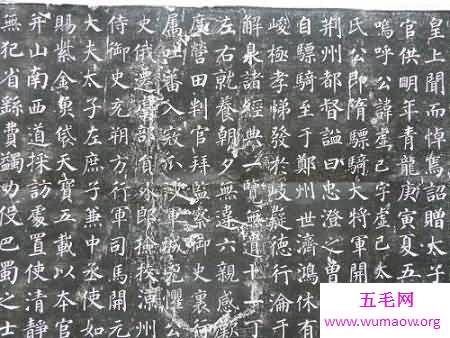 皇上聞而悼焉詔贈太子
官供明年青龍庚寅夏五
嗚呼公諱虛己字虛己太
氏公即隋驃騎大將軍開
荊州都督謚曰忠澄之曾
自驃騎至于鄭州世濟鴻休有
峻極孝悌發於岐嶷德行淪于
解泉諸經典一覽無遺十一丁
左右就養朝夕無違六親感歎
度營田判官拜監察御史裏行
属吐蕃入寇瓜沙軍城兇懼公
史俄遷駕部員外郎檢校涼州
侍御史充朔方行軍司馬開元
大夫太子左庶子兼中丞使如
賜紫金魚袋天寶五載以本官
并山南西道採訪處置使清靜
無犯省繇費蠲力役巴蜀之士
五毛网
www.wumaow.org